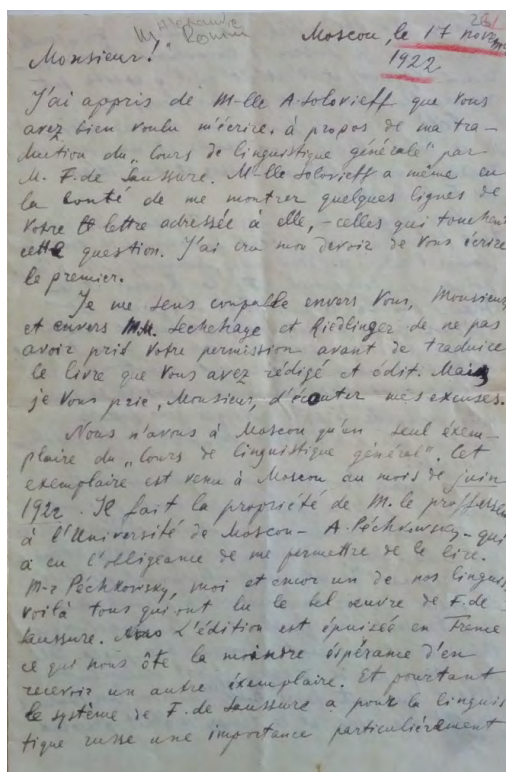 Alexandre
Romm
261
Moscou, le 17 novem
1922
Monsieur!
J'ai appris de M-lle A. Solovieff que Vous
avez bien voulu m'écrire à propos de ma tra-
duction du „Cours de linguistique générale" par
M. F. de Saussure. M-lle Solovieff a même eu
la bonté de me montrer quelques lignes de
Votre lettre adressée à elle, - celles qui touchent
cette question. J'ai cru mon devoir de Vous écrire
le premier.
Je me sens coupable envers Vous, Monsieur
et envers M.M. Sechehaye et Riedlinger de ne pas
avoir prit Votre permission avant de traduire
le livre que Vous avez rédigé et édit. Mais
je Vous prie, Monsieur, d'écouter mes excuses.
Nous n'avons à Moscou qu'un seul éxem-
plaire du „Cours de linguistique général". Cet
exemplaire est venu à Moscou au mois de juin
1922. Il fait la propriété de M. le professeur
à l'Université de Moscou - A. Péchkowsky - qui
a eu l'obligeance de me permettre de le lire.
M-r Péchkowsky, moi et encor un de nos linguis
voilà tous qui ont lu le bel œuvre de F. de
Saussure. L'édition est épuisée en France
ce qui nous ôte la moindre éspérance d'en
recevoir un autre éxemplaire. Et pourtant
le système de F. de Saussure a pour la linguis
tique russe une importance particulièrement